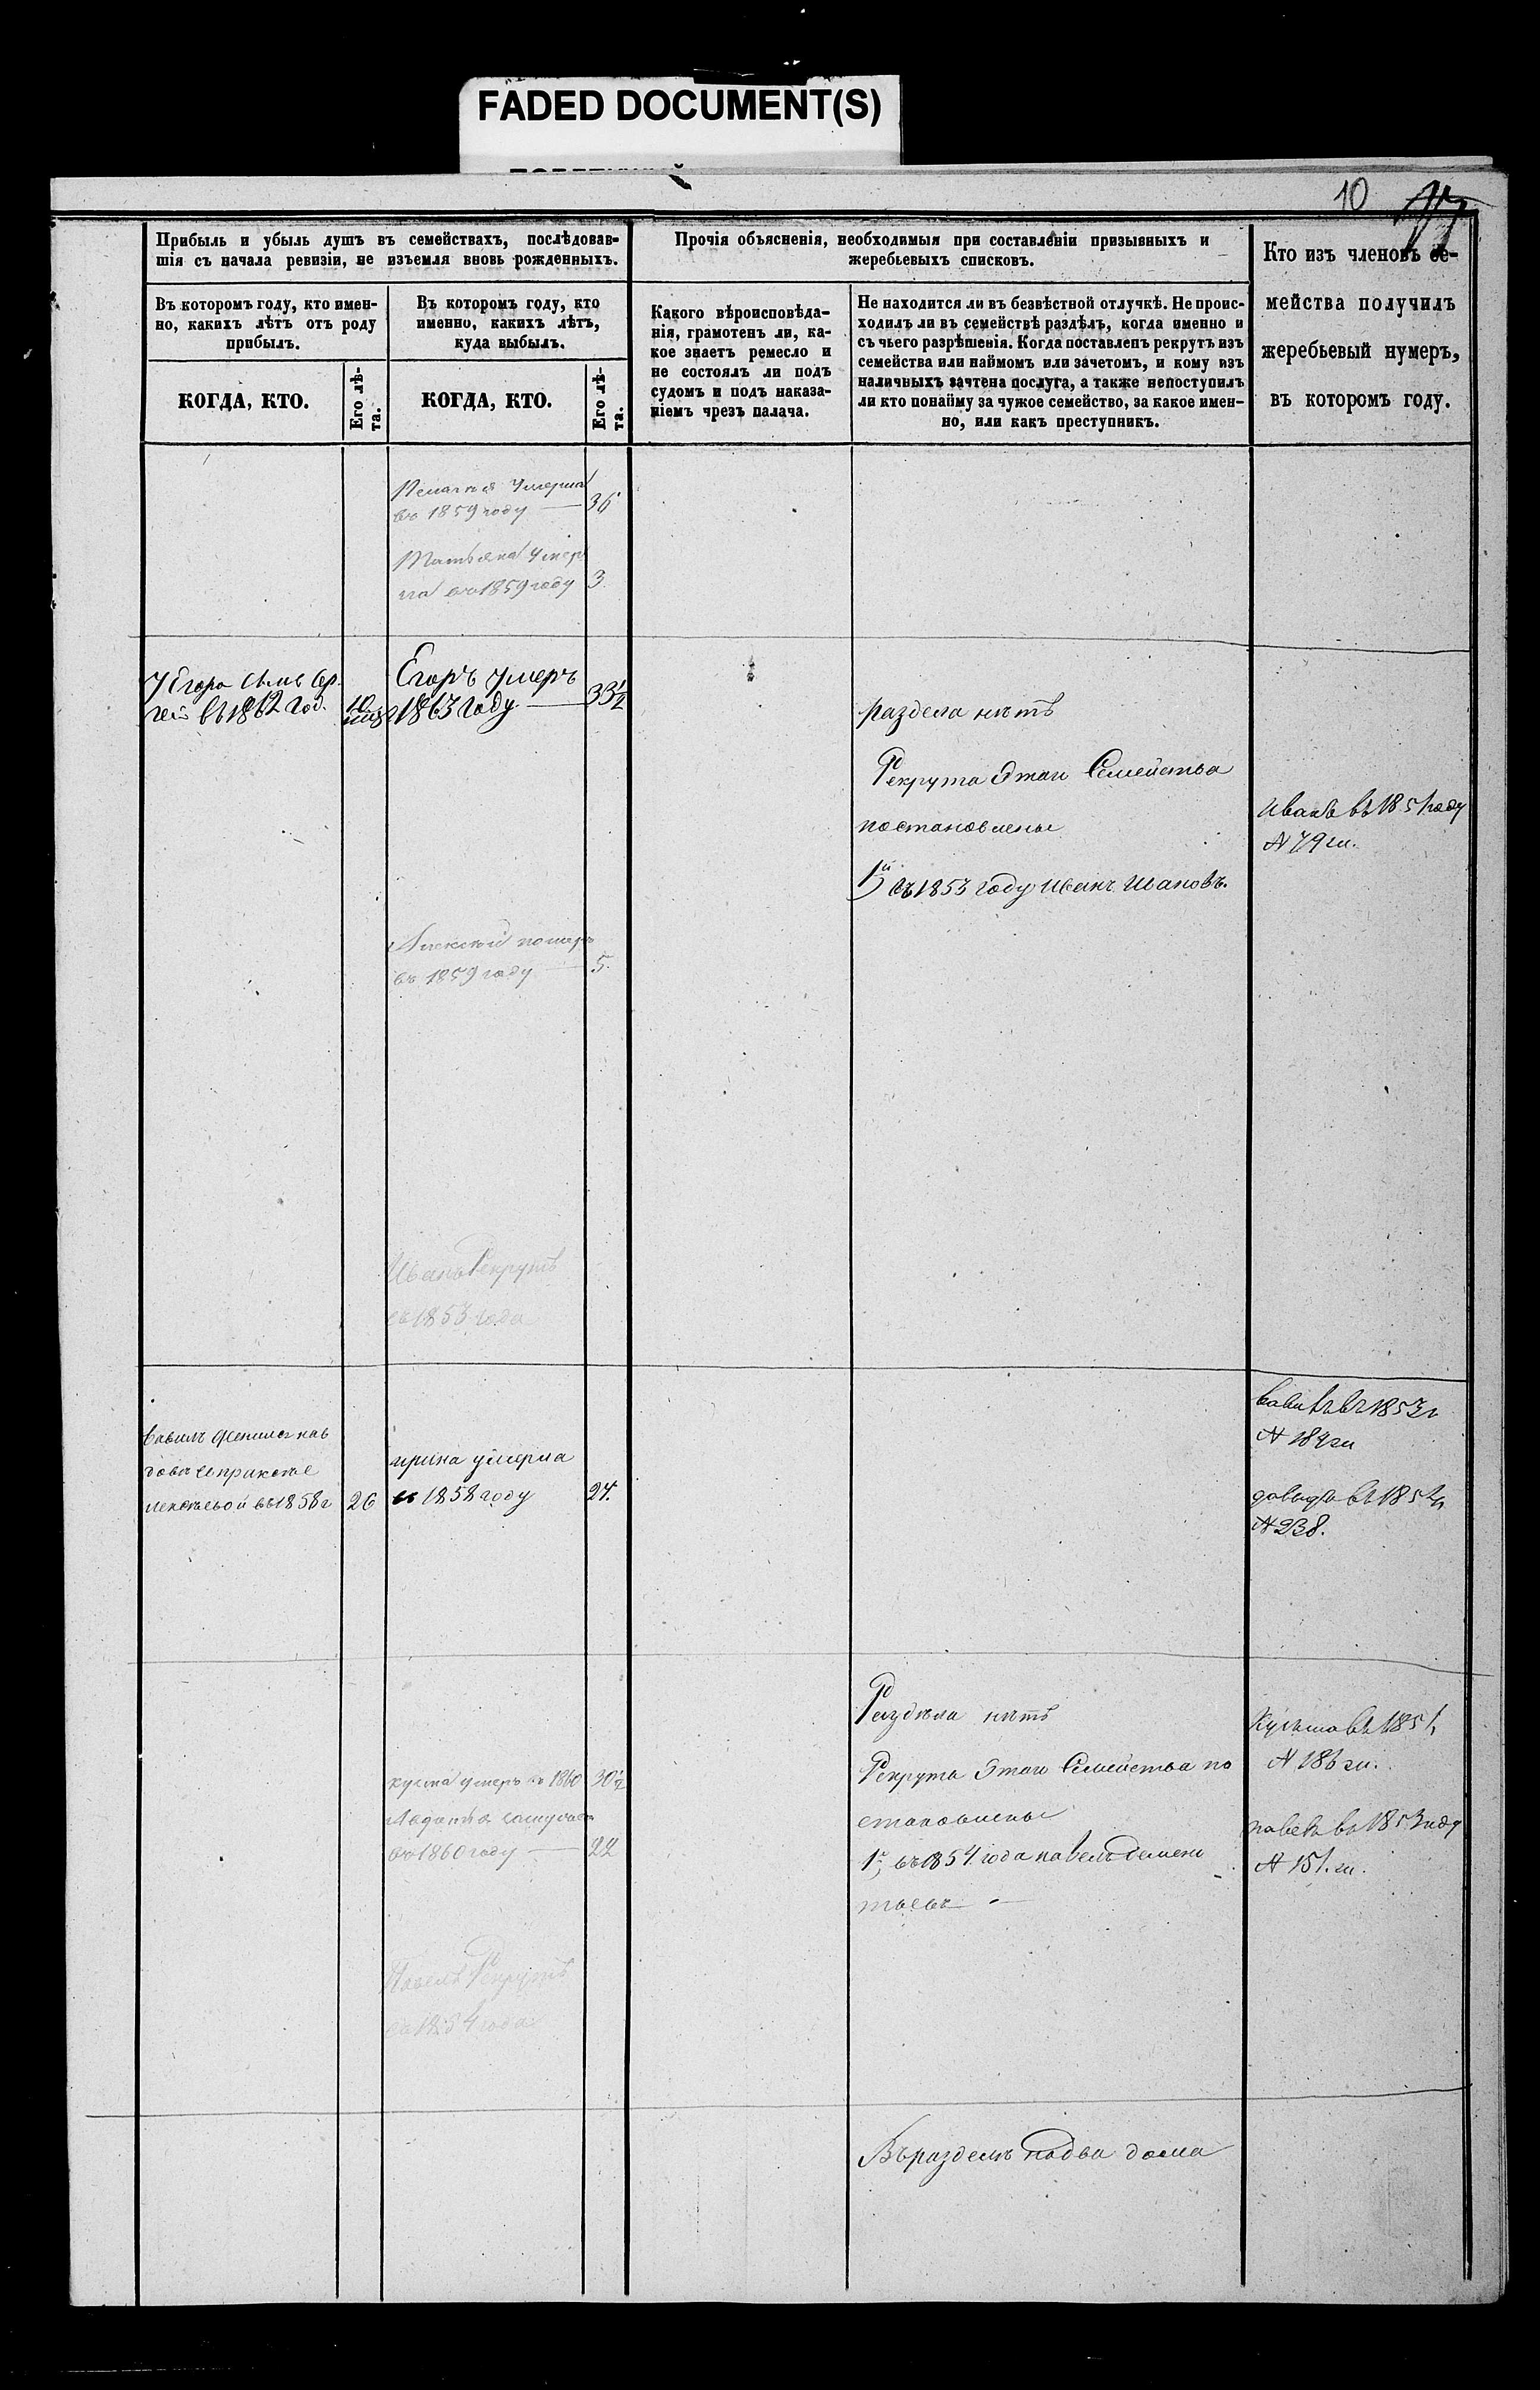 FADED DOCUMENT(S)
10
Прибыль и убыль душъ въ семействахъ, послѣдовав-
шія съ начала ревизіи, не изъемля вновь рожденныхъ.
Прочія объясненія, необходимыя при составленіи призывныхъ и
жеребьевыхъ списковъ.
Кто изъ членовъ се-
мейства получилъ
жеребьевый нумеръ,
въ которомъ году.
Въ которомъ году, кто имен-
но, какихъ лѣтъ отъ роду
прибылъ.
Въ которомъ году, кто
именно, какихъ лѣтъ,
куда выбылъ.
Какого вѣроисповѣда-
нія, грамотенъ ли, ка-
кое знаетъ ремесло и
не состоялъ ли подъ
судомъ и подъ наказа-
ніемъ чрезъ палача.
Не находится ли въ безвѣстной отлучкѣ. Не проис-
ходилъ ли въ семействѣ раздѣлъ, когда именно и
съ чьего разрѣшенія. Когда поставленъ рекрутъ изъ
семейства или наймомъ или зачетомъ, и кому изъ
наличныхъ зачтена послуга, а также непоступилъ
ли кто понайму за чужое семейство, за какое имен-
но, или какъ преступникъ.
КОГДА, КТО.
Его лѣ-
та.
КОГДА, КТО.
Его лѣ-
та.
умерла
въ 1859 году 36
Татьяна умер
ла въ 1859 году 3
У Егора сынъ Сер
гей въ 1862 год. 10
Егоръ умеръ
1863 году 33½
раздела нѣтъ
Рекрута Этаго Семейства
постановлены
1й въ 1853 году Иванъ Ивановъ.
Иванъ въ 1851 году
№ 79
Алексей померъ
въ 1859 году 5.
Иванъ Рекрутъ
съ 1853 года
въ 1858 г 26
ирина умерла
въ 1858 году 24.
въ 1853 г
№ 184
давыдъ въ 185
№ 238.
Раздѣла нѣтъ
Рекрута Этаго Семейства по
становлены
1й въ 1854 года павелъ Демен
тьевъ
Кузьма въ 1851
№ 186
павелъ въ 1853 году
№ 151.
кузма умеръ въ 1860 30½
Авдотья
въ 1860 году 22
Павелъ Рекрутъ
съ 1854 года
Въ разделѣ на два дома